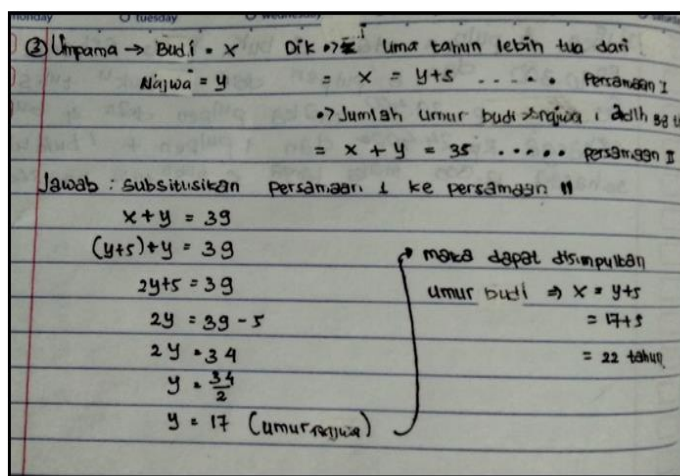 monday tuesday wednesday
③ Umpama → Budi = x Dik •> x lima tahun lebih tua dari
Najwa = y = x = y+5 ...... Persamaan I
•> Jumlah umur budi najwa adlh
= x + y = 35 ..... persamaan II
Jawab : Subsitusikan persamaan 1 ke persamaan II
x+y = 39
(y+5)+y = 39
2y+5 = 39
2y = 39 - 5
2y = 34
y = 34/2
y = 17 (umur najwa)
maka dapat disimpulkan
umur budi ⇒ x = y+5
= 17+5
= 22 tahun